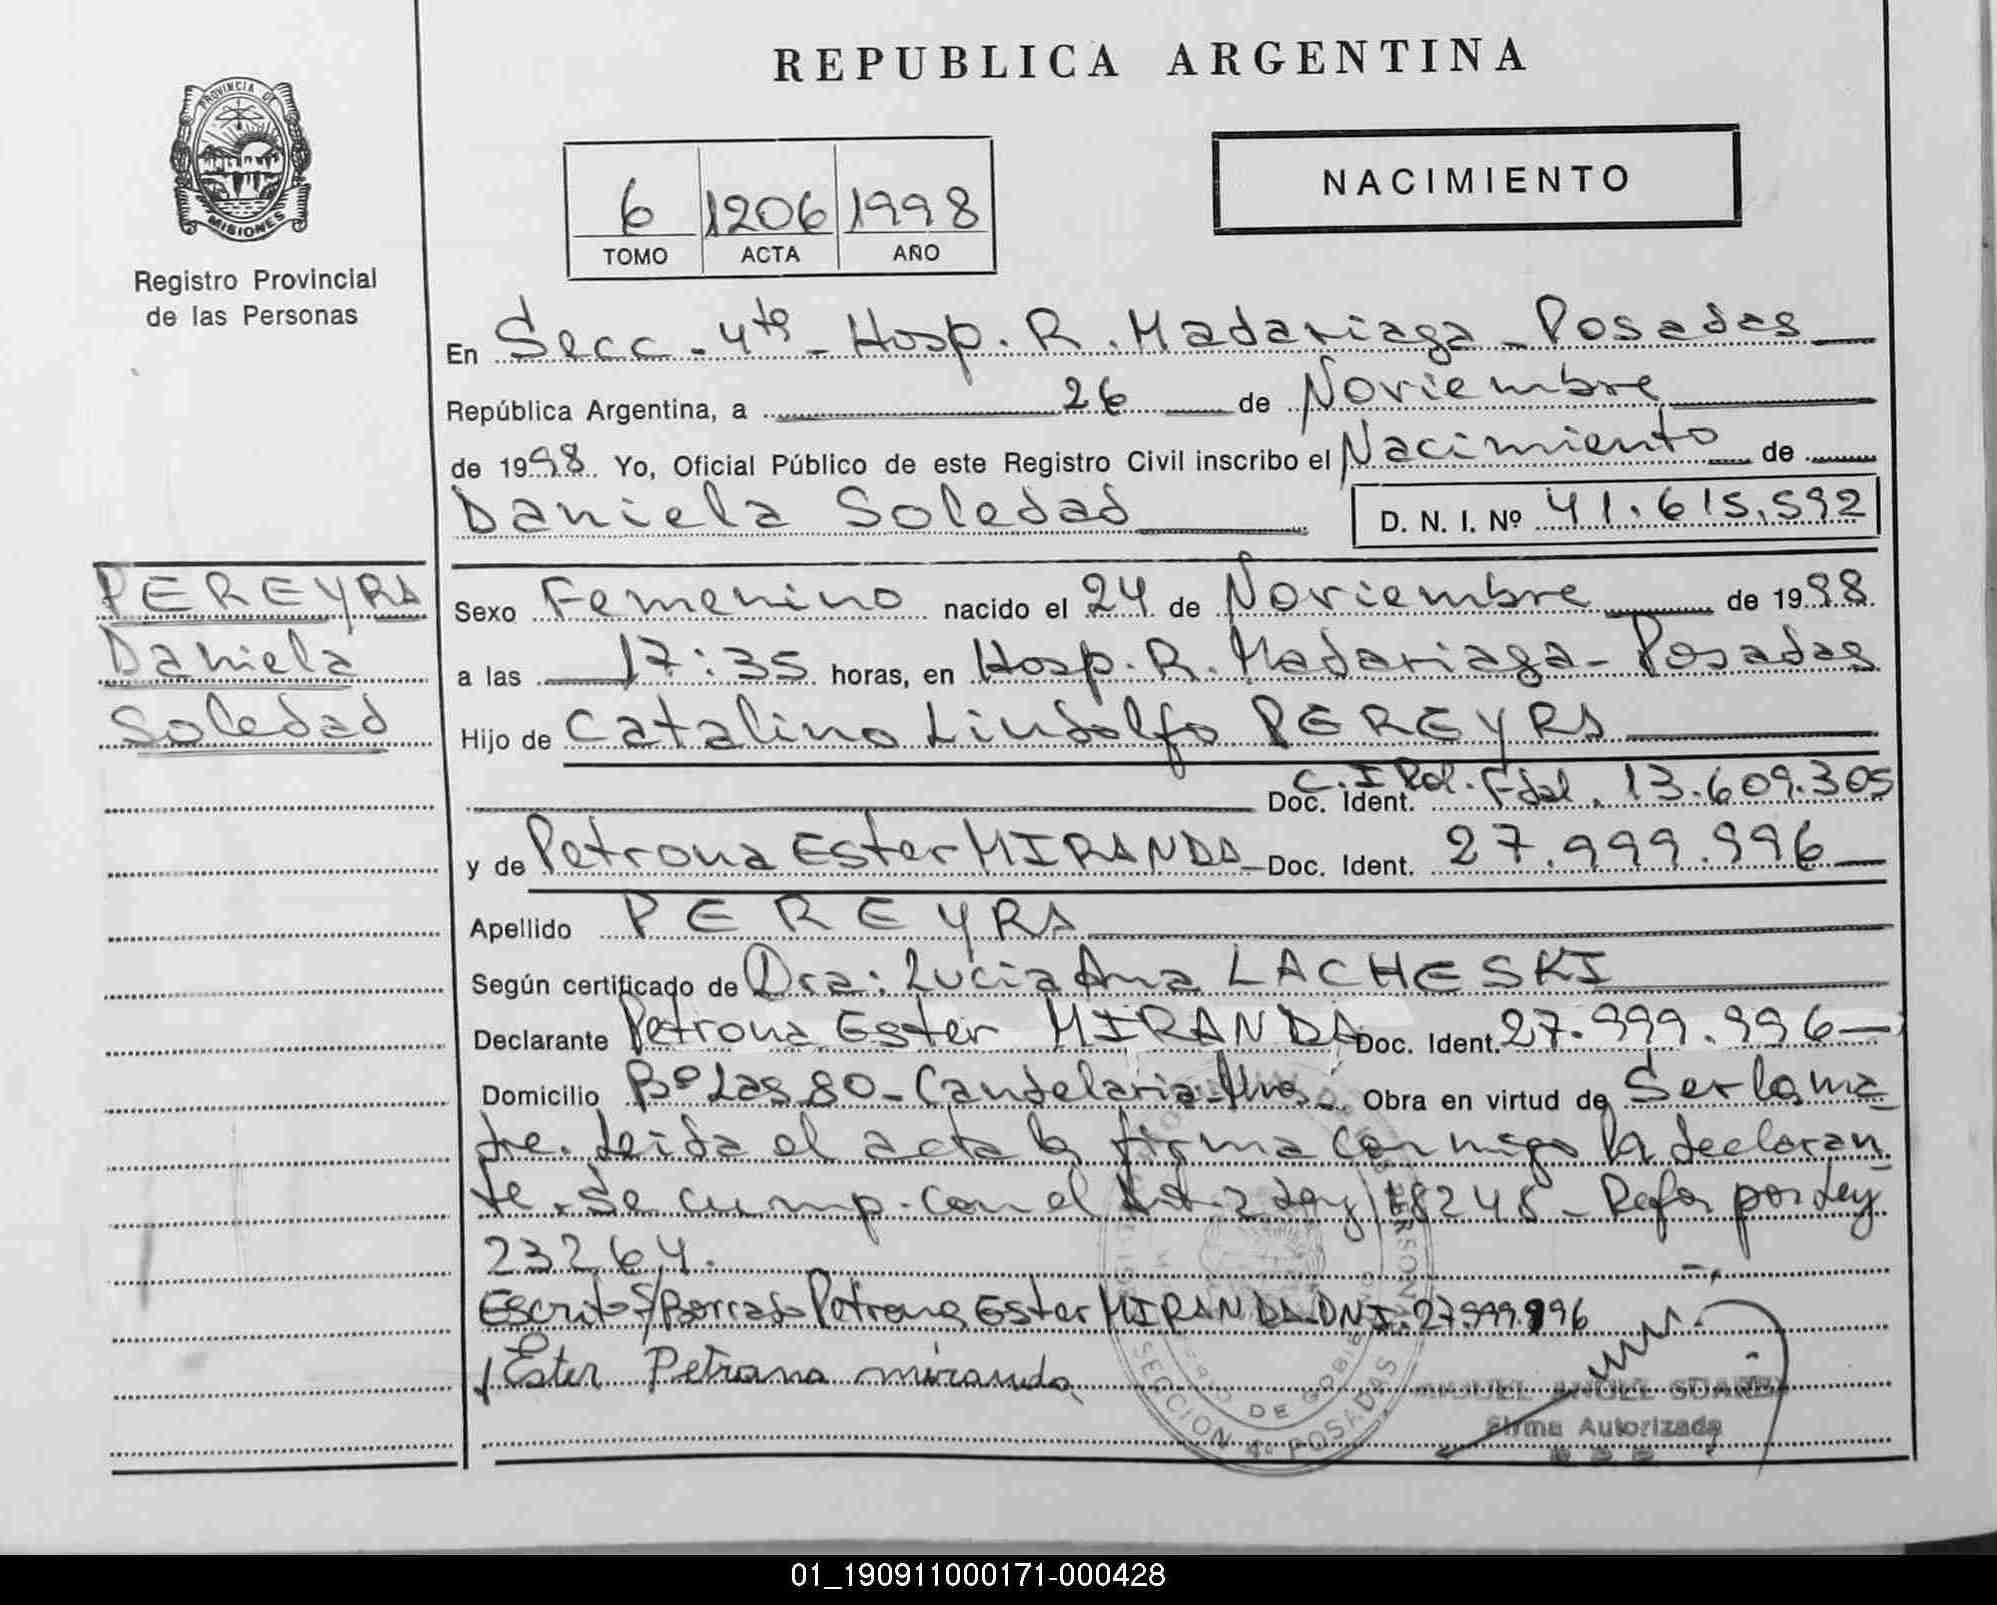 REPUBLICA ARGENTINA
PROVINCIA DE
MISIONES
Registro Provincial
de las Personas
6 1206 1998
TOMO ACTA AÑO
NACIMIENTO
En Secc. 4ta - Hosp. R. Madariaga - Posadas
República Argentina, a 26 de Noviembre
de 1998. Yo, Oficial Público de este Registro Civil inscribo el Nacimiento de
Daniela Soledad D. N. I. Nº 41.615.592
PEREYRA
Daniela
Soledad
Sexo Femenino nacido el 24 de Noviembre de 1998.
a las 17:35 horas, en Hosp. R. Madariaga - Posadas
Hijo de Catalino Lindolfo PEREYRA
Doc. Ident. C.I Pol. Fdal. 13.609.305
y de Petrona Ester MIRANDA Doc. Ident. 27.999.996
Apellido PEREYRA
Según certificado de Dra: Lucia Ana LACHESKI
Declarante Petrona Ester MIRANDA Doc. Ident. 27.999.996
Domicilio Bº Las 80 - Candelaria - Mnes. Obra en virtud de Ser la ma
dre. Leida el acta la firma conmigo la declaran
te. Se cump. con el Art. 2 Ley 18248 - Refor por Ley
23264.
Escrito S/Borrado Petrona Ester MIRANDA DNI. 27.999.996
Ester Petrona miranda
SECCION 4ª POSADAS
MIGUEL ANGEL SUAREZ
Firma Autorizada
01_190911000171-000428